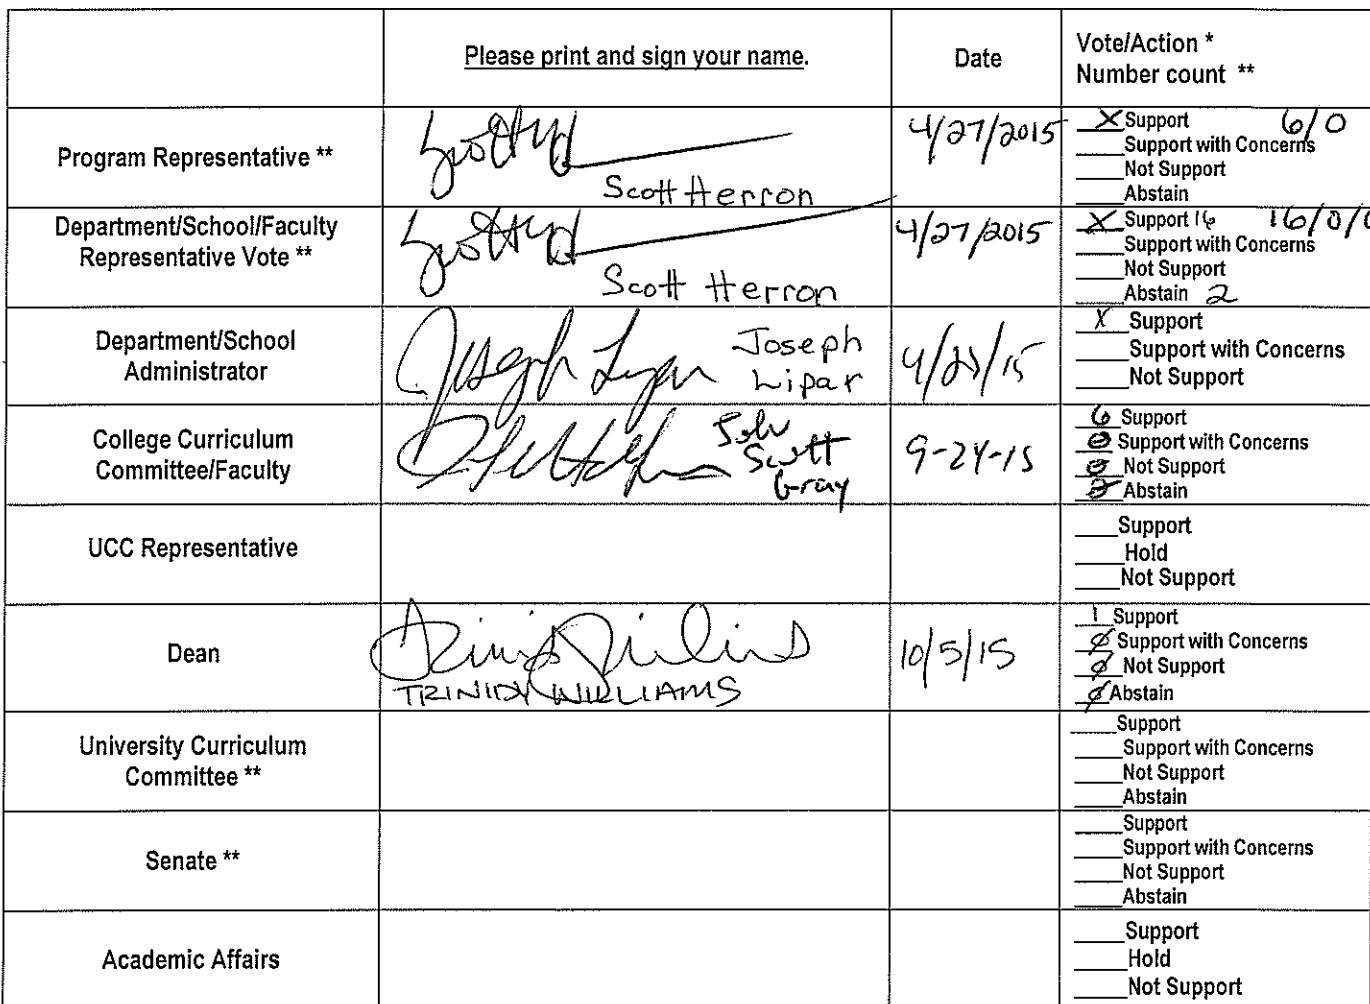 Please print and sign your name.
Date
Vote/Action *
Number count **
Program Representative **
Scott Herron
4/27/2015
X Support 6/0
___Support with Concerns
___Not Support
___Abstain
Department/School/Faculty
Representative Vote **
Scott Herron
4/27/2015
X Support 16 16/0/0
___Support with Concerns
___Not Support
___Abstain 2
Department/School
Administrator
Joseph
Lipar
X Support
___Support with Concerns
___Not Support
College Curriculum
Committee/Faculty
John
Scott
Gray
9-24-15
6 Support
0 Support with Concerns
0 Not Support
2 Abstain
UCC Representative
___Support
___Hold
___Not Support
Dean
TRINIDY WILLIAMS
10/5/15
1 Support
Ø Support with Concerns
Ø Not Support
Ø Abstain
University Curriculum
Committee **
___Support
___Support with Concerns
___Not Support
___Abstain
Senate **
___Support
___Support with Concerns
___Not Support
___Abstain
Academic Affairs
___Support
___Hold
___Not Support